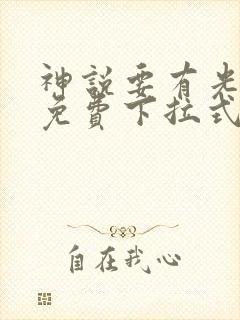 神說要有光
免費下拉式
自在我心